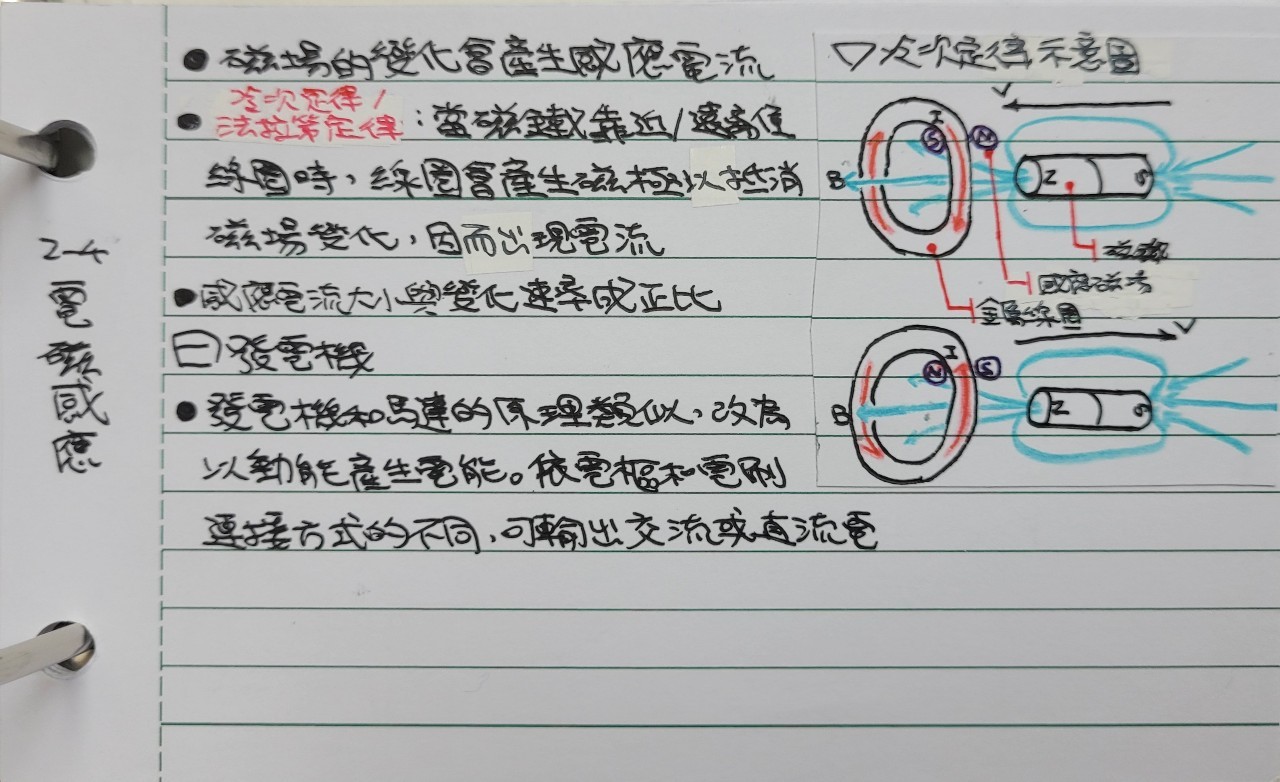 2-4 電磁感應
● 磁場的變化會產生感應電流
● 冷次定律/
法拉第定律：當磁鐵靠近/遠離
線圈時，線圈會產生磁極以抵消
磁場變化，因而出現電流
● 感應電流大小與變化速率成正比
㊀發電機
● 發電機和馬達的原理類似，改為
以動能產生電能。依電樞和電刷
連接方式的不同，可輸出交流或直流電
▽冷次定律示意圖
V
I
S
N
B
N
S
磁鐵
感應磁場
金屬線圈
V
I
N
S
B
N
S